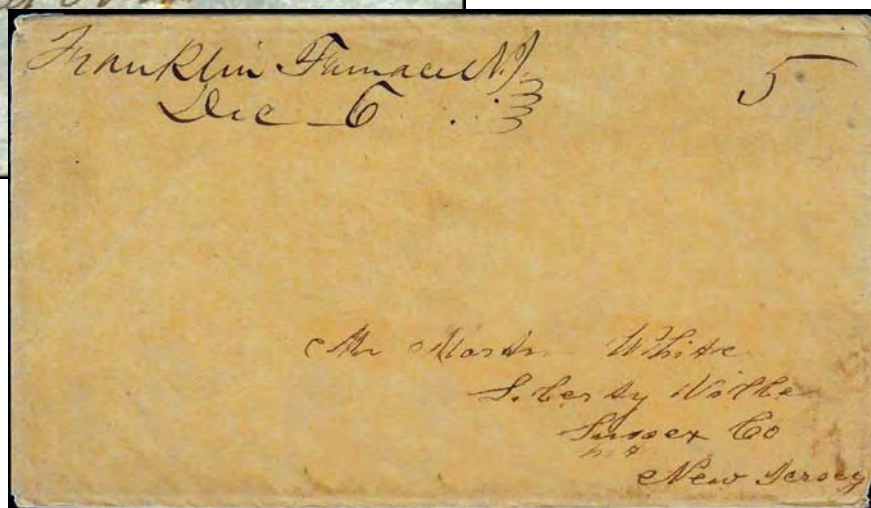 Franklin Furnace N.J.
5
Dec 6
Mr Martin White
Liberty Ville
Sussex Co
New Jersey